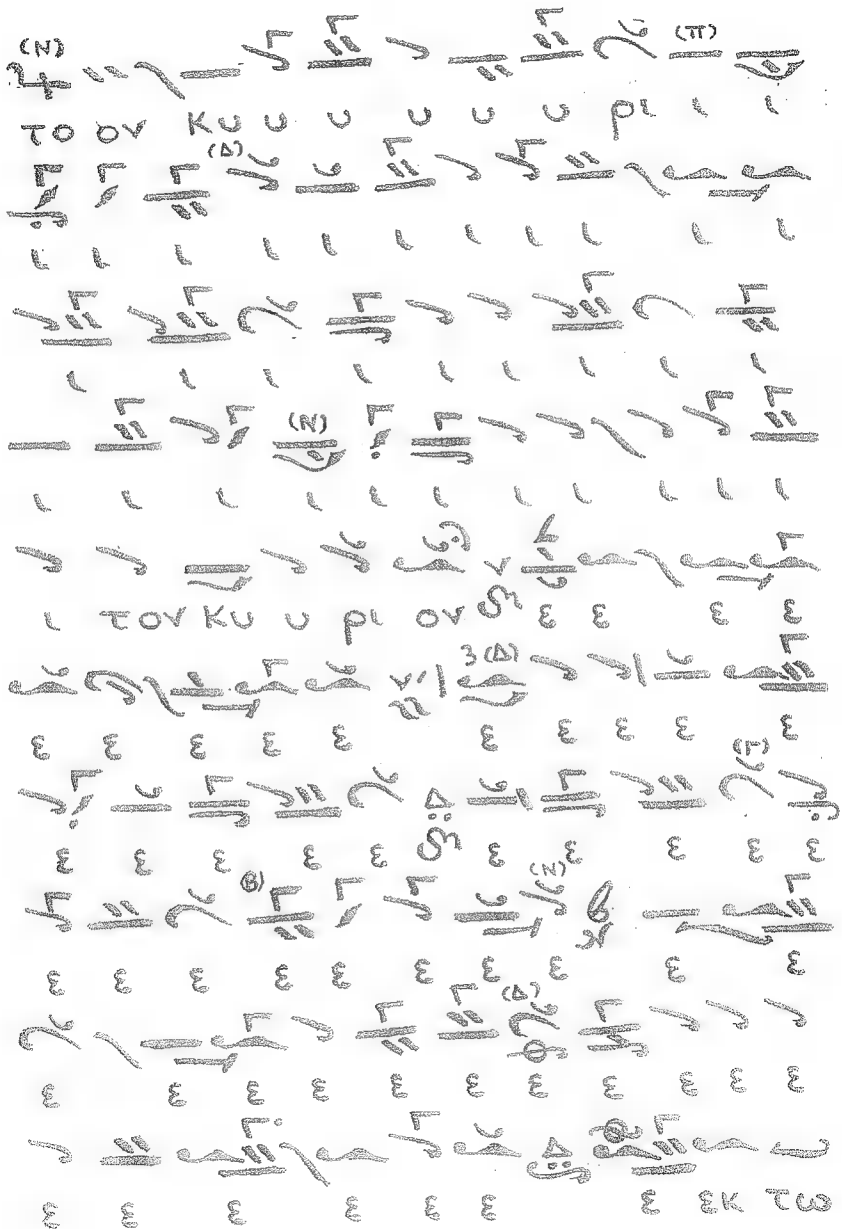 (Ν) (Π)
το ον κυ υ υ υ υ υ ρι ι ι
(Δ)
ι ι ι ι ι ι ι ι ι ι ι
ι ι ι ι ι ι ι ι ι
(Ν)
ι ι ι ι ι ι ι ι ι ι ι
ι τον κυ υ ρι ον ε ε ε ε
3 (Δ)
ε ε ε ε ε ε ε ε ε ε
Δ (Γ)
ε ε ε ε ε ε ε ε ε ε
(Β) (Ν)
ε ε ε ε ε ε ε ε ε ε
(Δ)
ε ε ε ε ε ε ε ε ε ε ε
Δ
ε ε ε ε ε ε ε εκ τω